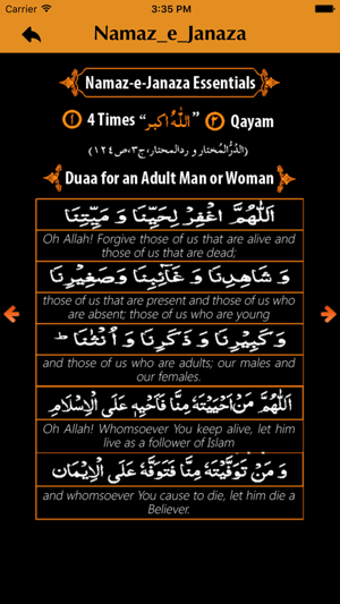 Carrier 3:35 PM
Namaz_e_Janaza
Namaz-e-Janaza Essentials
۱ 4 Times “اَللّٰهُ اَكبر” ۲ Qayam
(الدُّرُّالمُختار و ردالمحتار،ج۳،ص۱۲٤)
Duaa for an Adult Man or Woman
اَللّٰهُمَّ اغْفِرْ لِحَيِّنَا وَ مَيِّتِنَا
Oh Allah! Forgive those of us that are alive and
those of us that are dead;
وَ شَاهِدِنَا وَ غَآئِبِنَا وَصَغِيْرِنَا
those of us that are present and those of us who
are absent; those of us who are young
وَ كَبِيْرِنَا وَ ذَكَرِنَا وَ اُنْثٰنَا ؕ
and those of us who are adults; our males and
our females.
اَللّٰهُمَّ مَنْ اَحْيَيْتَهٗ مِنَّا فَاَحْيِهٖ عَلَى الْاِسْلَامِ
Oh Allah! Whomsoever You keep alive, let him
live as a follower of Islam
وَ مَنْ تَوَفَّيْتَهٗ مِنَّا فَتَوَفَّهٗ عَلَى الْاِيْمَان
and whomsoever You cause to die, let him die a
Believer.